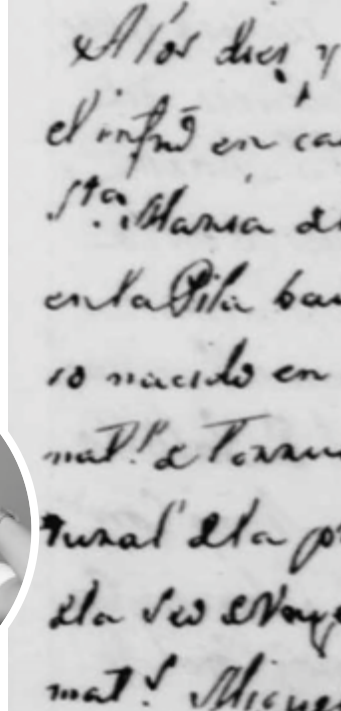 A los diez y
el infrō en ca
Sta. Maria de
en la Pila bau
so nacido en
mat.s de Torru
tural de la p
de la Seo de
mat.s Migue